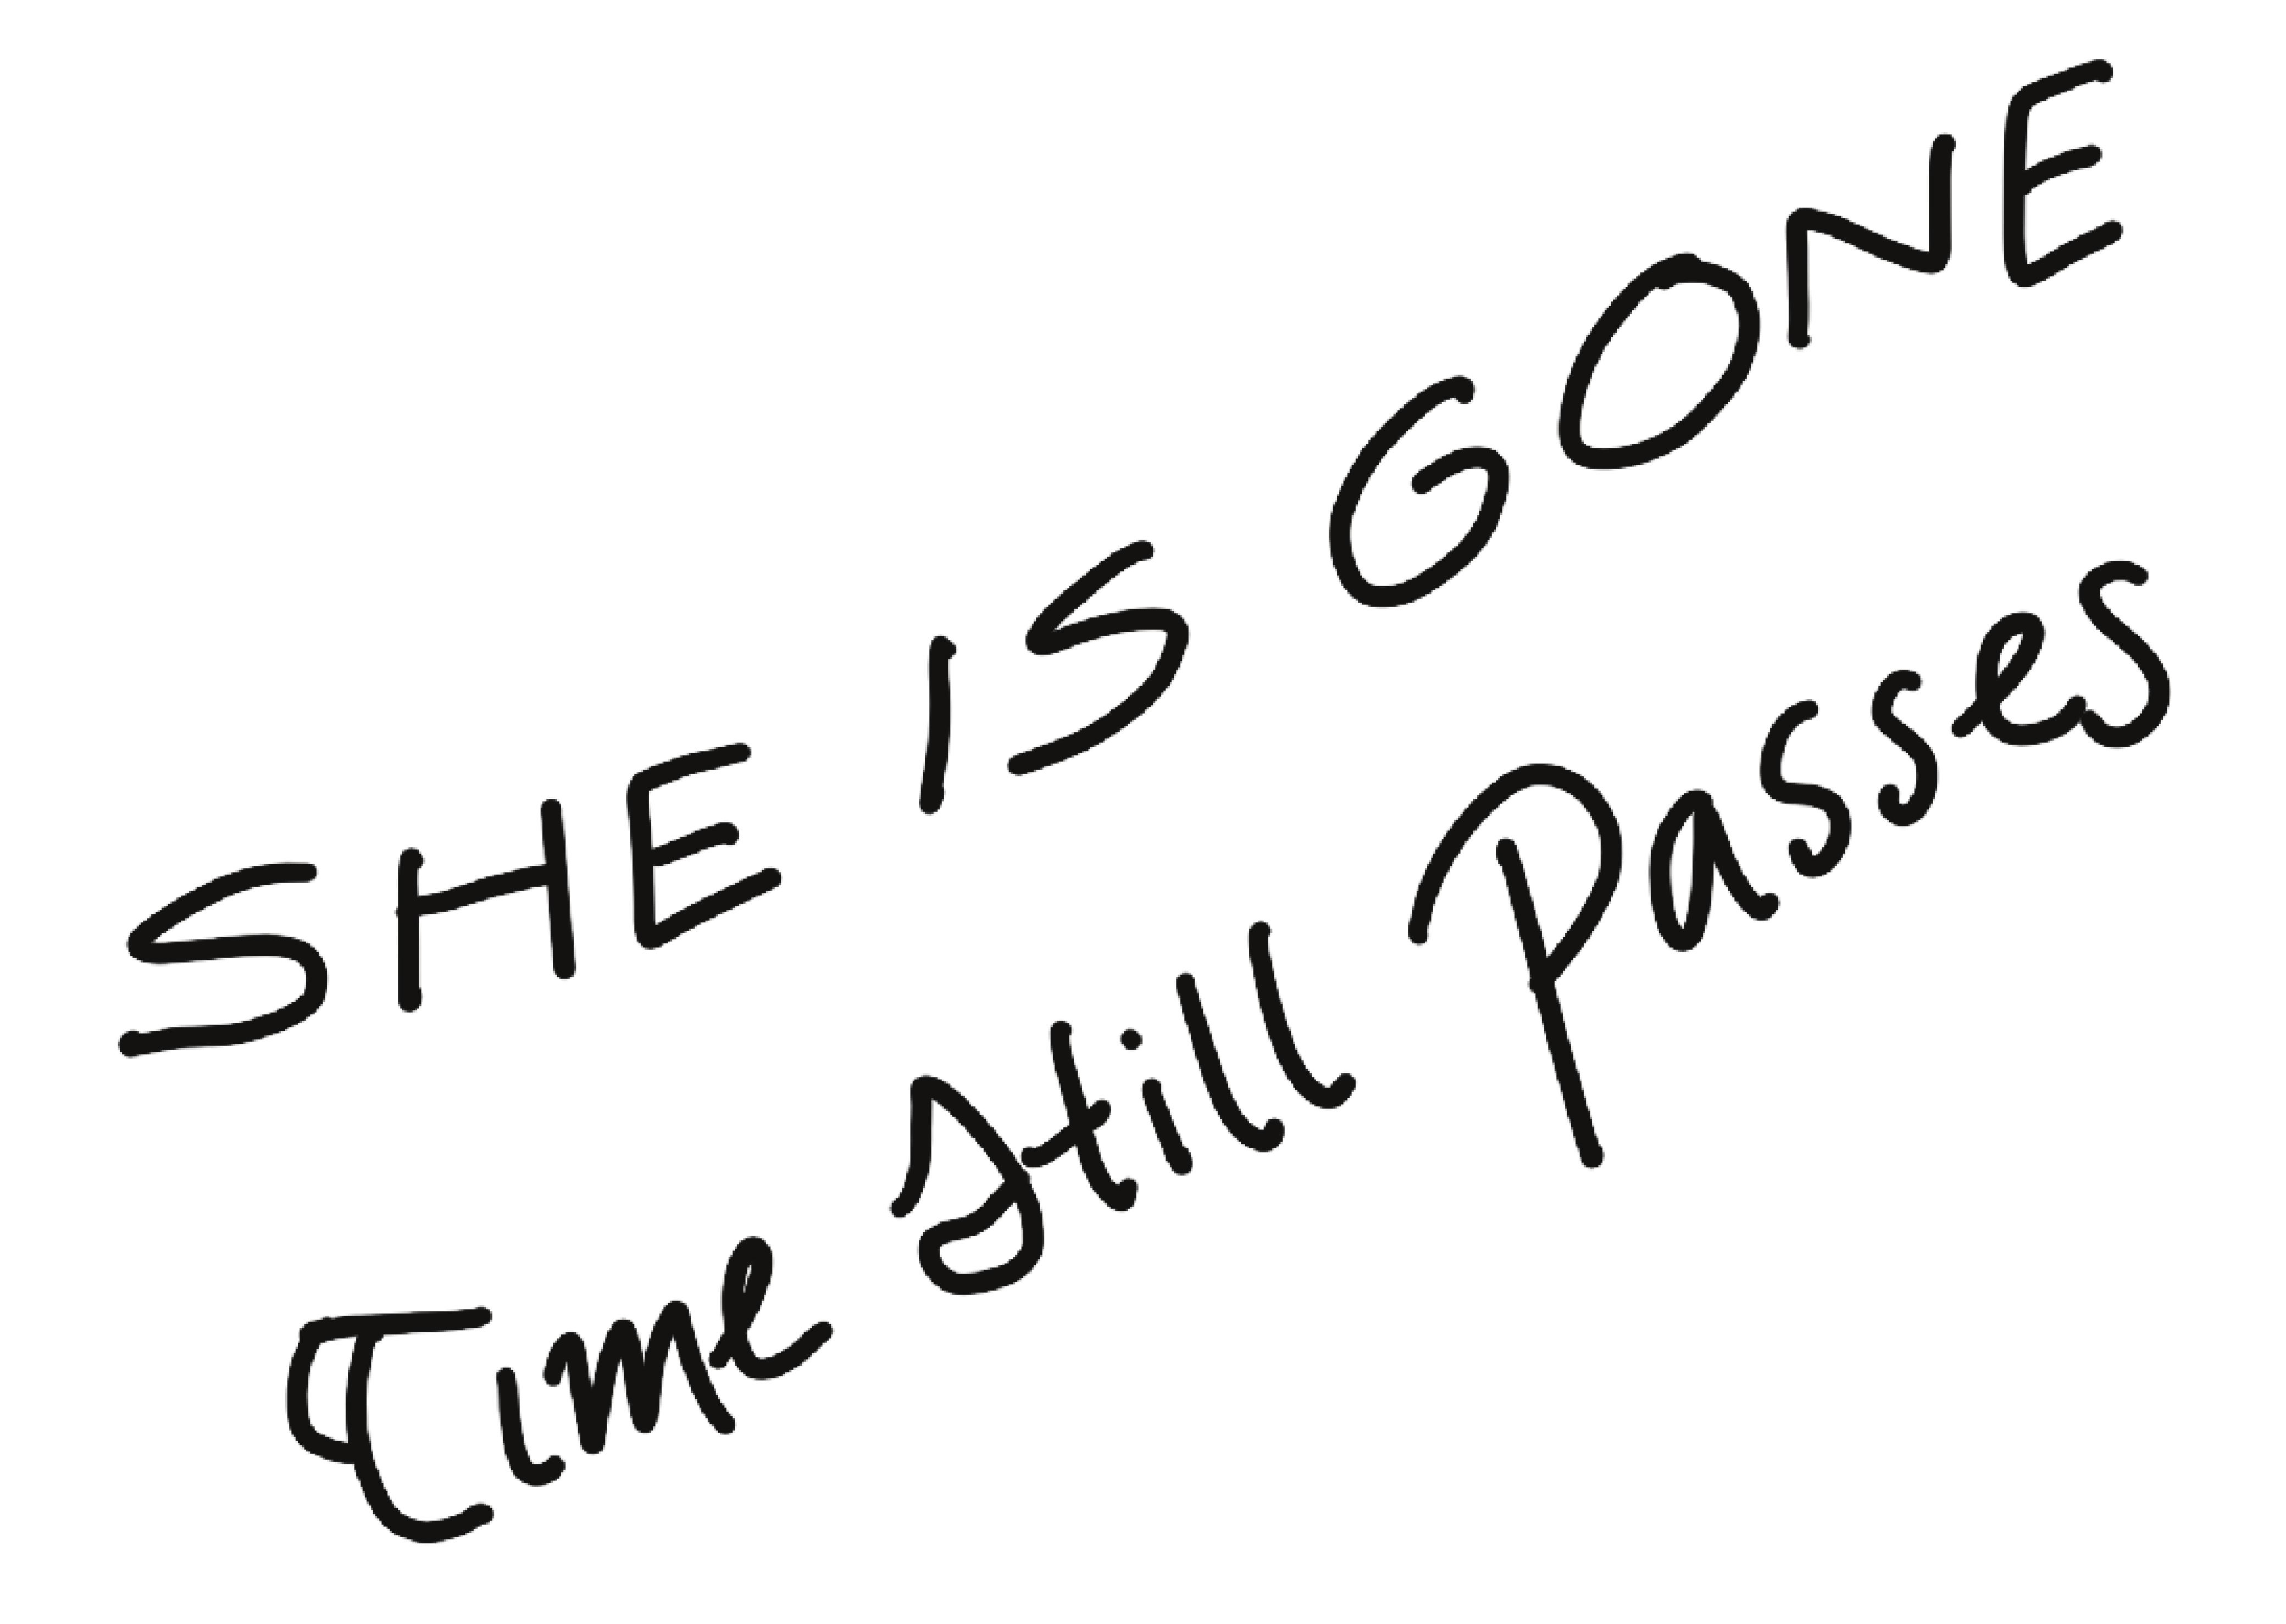 SHE IS GONE
Time Still Passes